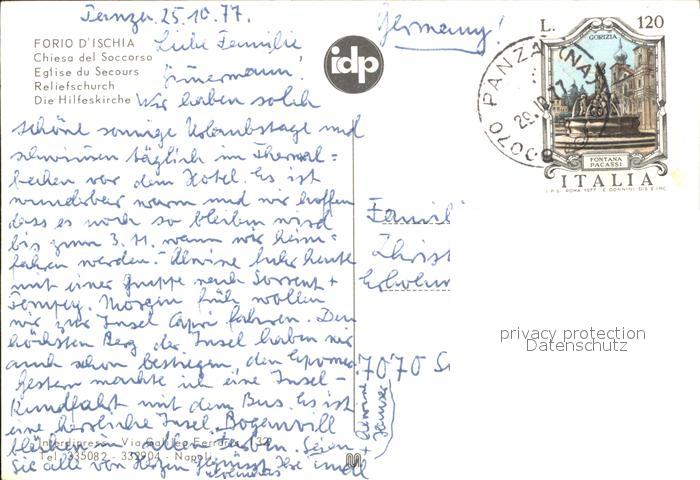 Panza, 25.10.77.
Germany!
FORIO D'ISCHIA
Chiesa del Soccorso
Eglise du Secours
Reliefschurch
Die Hilfeskirche
idp
L. 120
GORIZIA
FONTANA
PACASSI
ITALIA
I.P.S. ROMA 1977 E. DONNINI DIS. E INC.
80070 PANZA (NA)
29.10.77
Liebe Familie
Wir haben solch
schöne sonnige Urlaubstage und
schwimmen täglich im Thermal=
becken vor dem Hotel. Es ist
wunderbar warm und wir hoffen
dass es noch so bleiben wird
bis zum 3.11. wann wir heim=
fahren werden. Alwine fuhr heute
mit einer Gruppe nach Sorrent +
Pompey. Morgen früh wollen
wir zur Insel Capri fahren. Den
höchsten Berg der Insel haben wir
auch schon bestiegen, den Epomeo
Gestern machte ich eine Insel-
Rundfahrt mit dem Bus. Es ist
eine herrliche Insel. Bogenvill
blühen in allen Farben. Seien
Sie alle von Herzen gegrüsst
+ Alwine
Interdipress Via Galileo Ferraris, 32
Tel. 335082 - 332904 - Napoli
Famili
Christ
Erholun
7070 S
privacy protection
Datenschutz